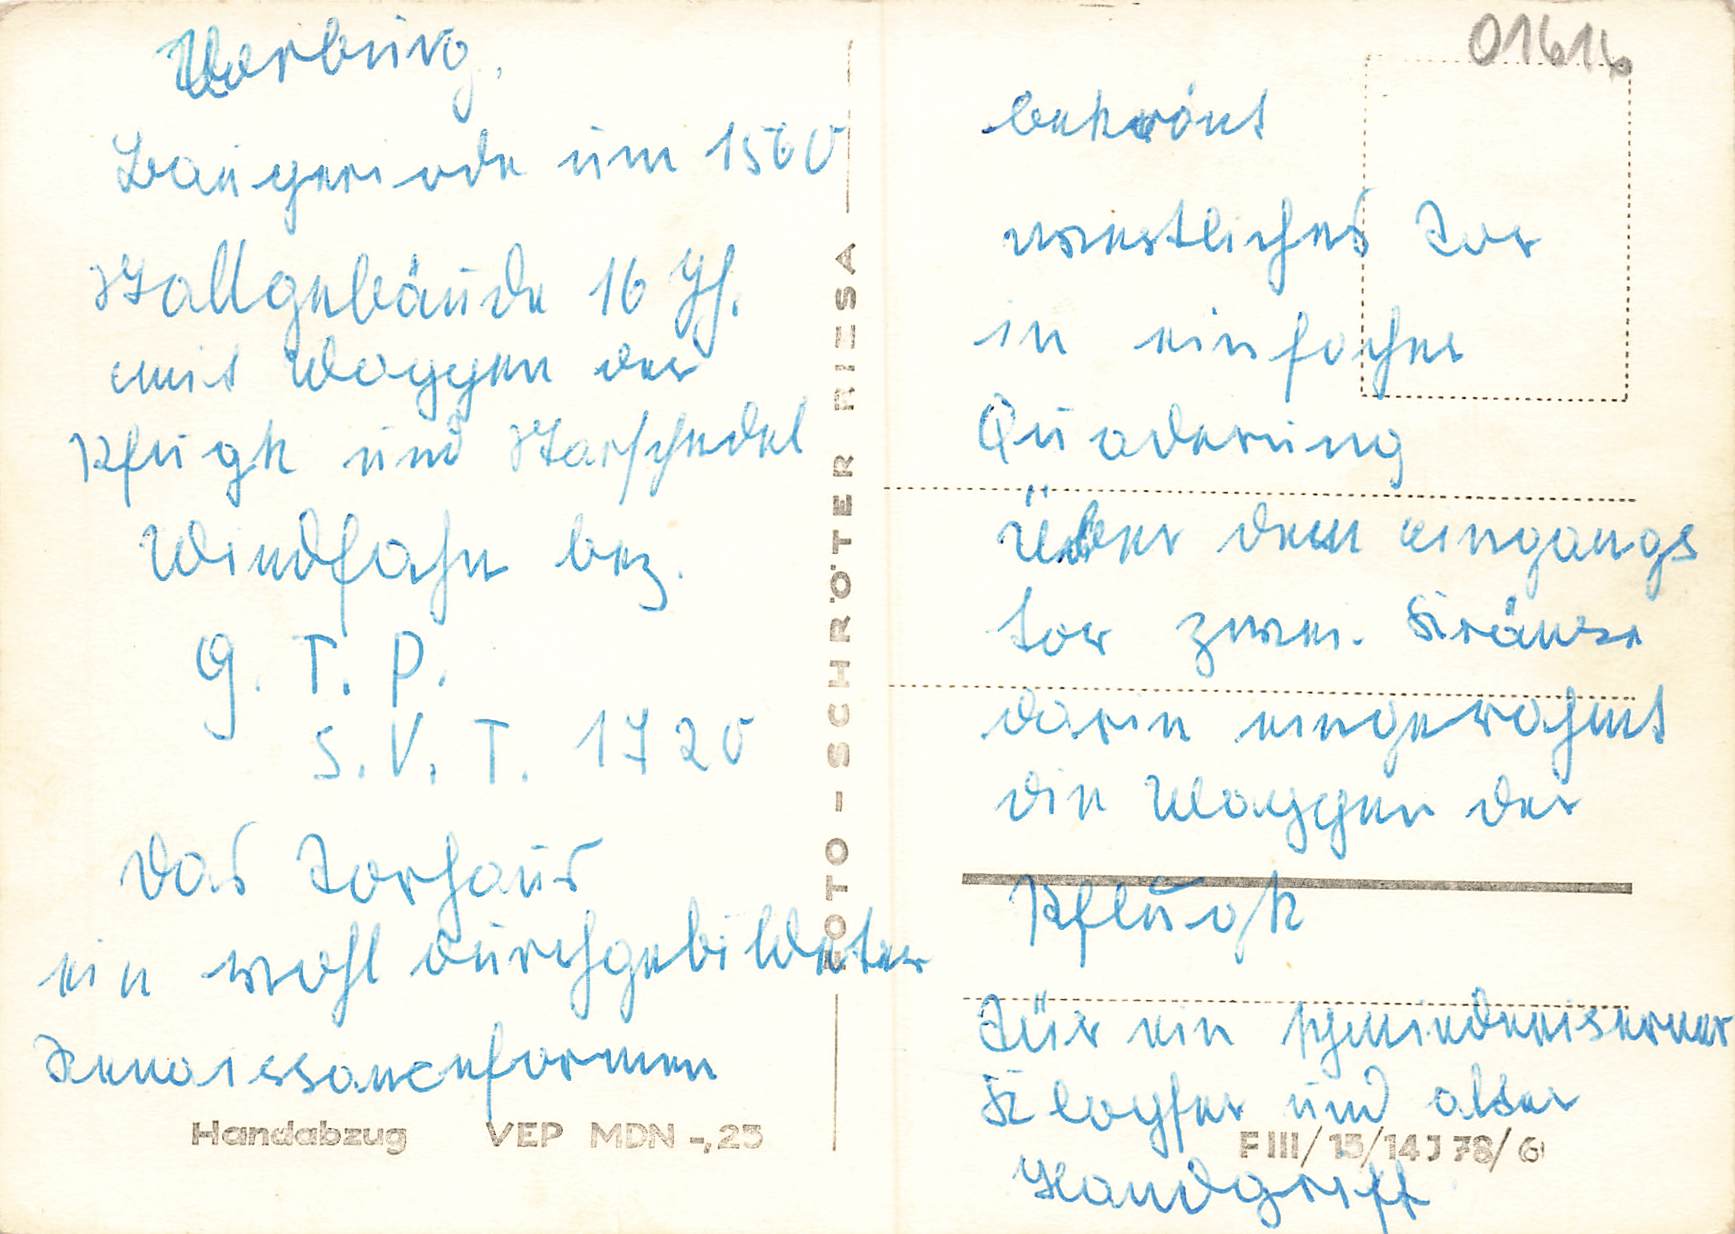 01616
Vorburg.
Bauperiode um 1560
Stallgebäude 16 Jh.
mit Wappen der
Pflugk und Starschedel
Windfahn bez.
G. T. P.
S. V. T. 1720
Das Torhaus
ein wohl durchgebildeter
Renaissanceformen
Handabzug VEP MDN -,25
FOTO-SCHRÖTER RIESA
bekrönt
westliches Tor
in einfacher
Quaderung
Über dem eingangs
tor zwei Kränze
darin eingerahmt
die Wappen der
Pflugk
Tür ein schmiedeiserner
Klopfer und alter
F III/13/14 J 78/6
Handgriff